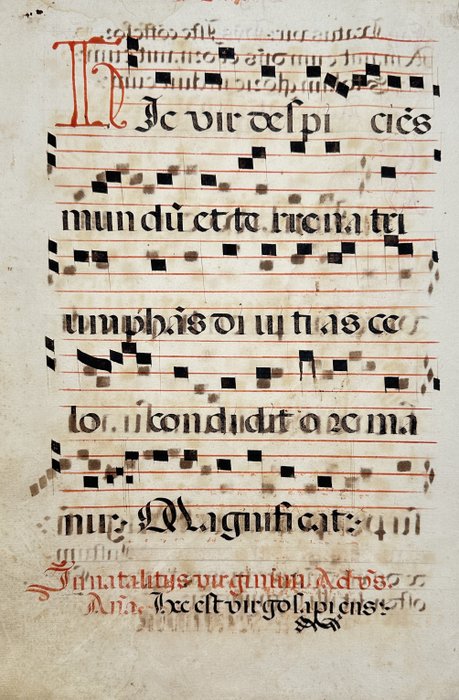 HIc vir deſpi ciẽs
mun dũ et te rrena tri
umphãs di ui ti as ce
lo condidit o re ma
nu: Magnificat:
In natalitijs virginum Ad vs̃
Aña. Hec est virgo sapiens: